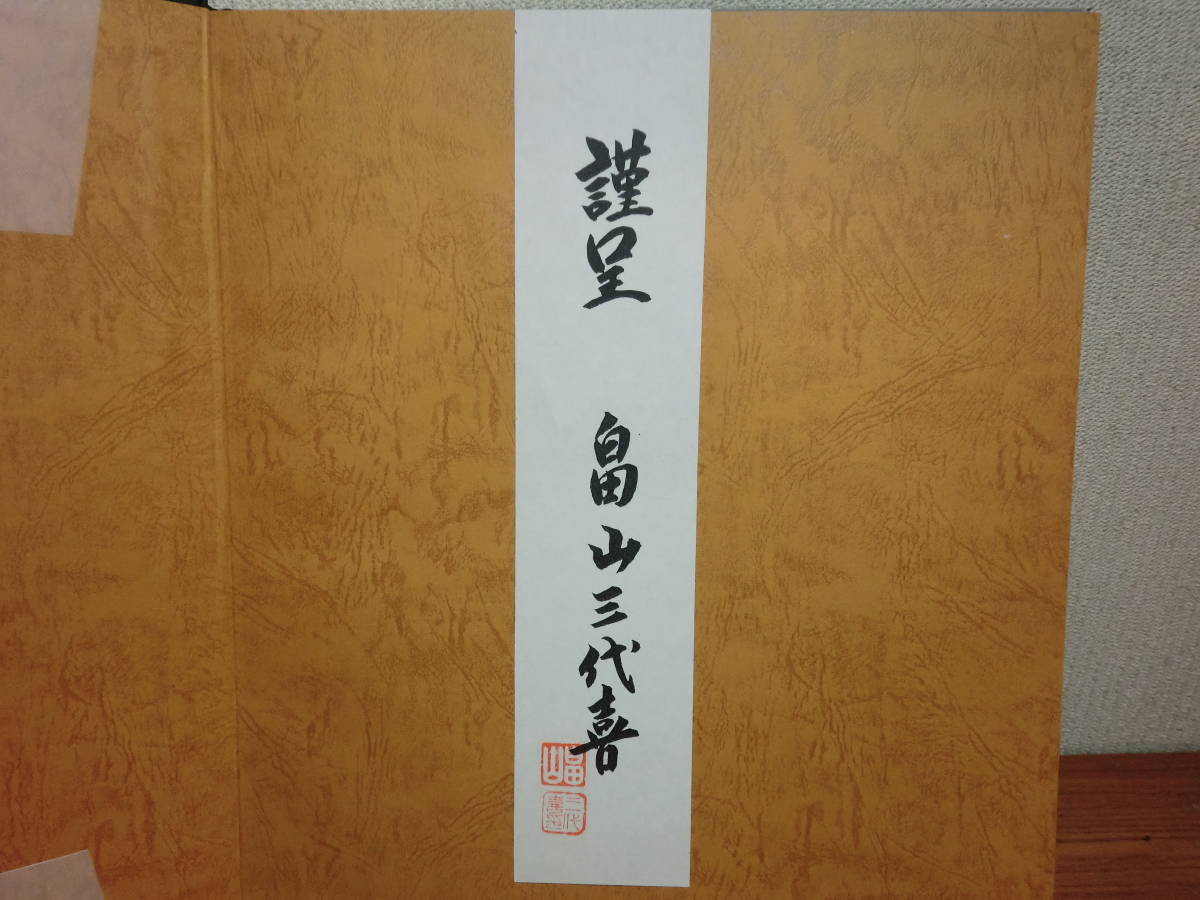 謹呈 畠山三代喜
畠山
三代喜